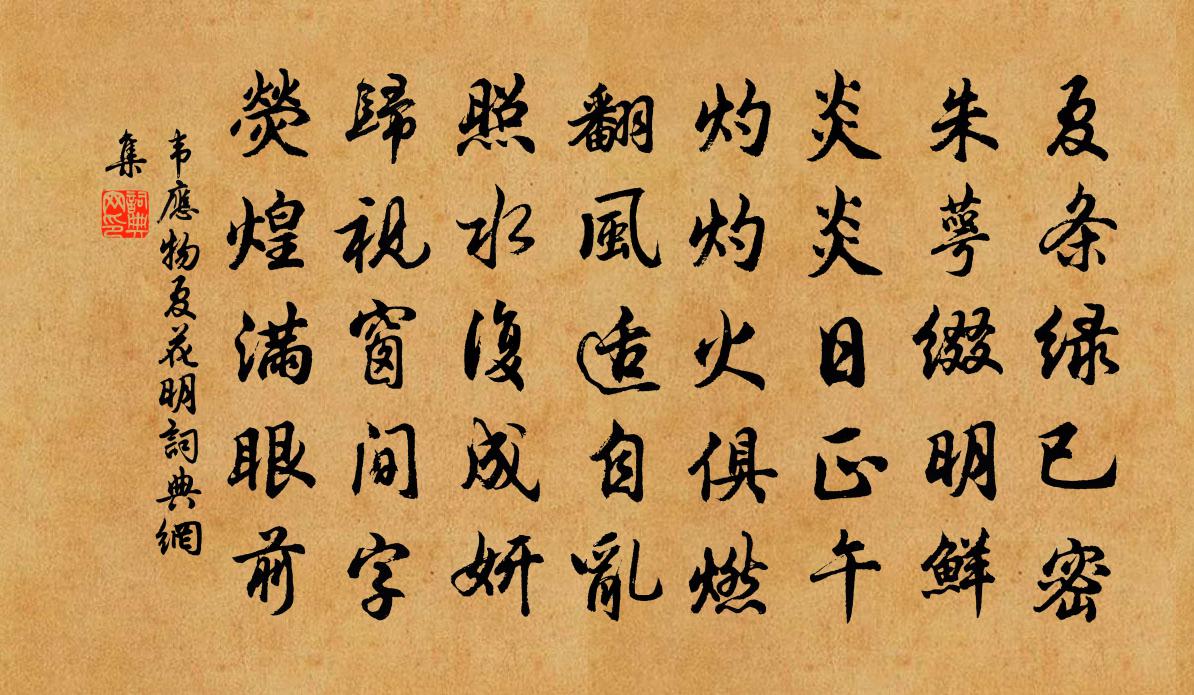 夏条绿已密
朱萼缀明鲜
炎炎日正午
灼灼火俱燃
翻風适自亂
照水復成妍
歸視窗间字
熒煌满眼前
韦應物夏花明詞典網
集
詞典
网印